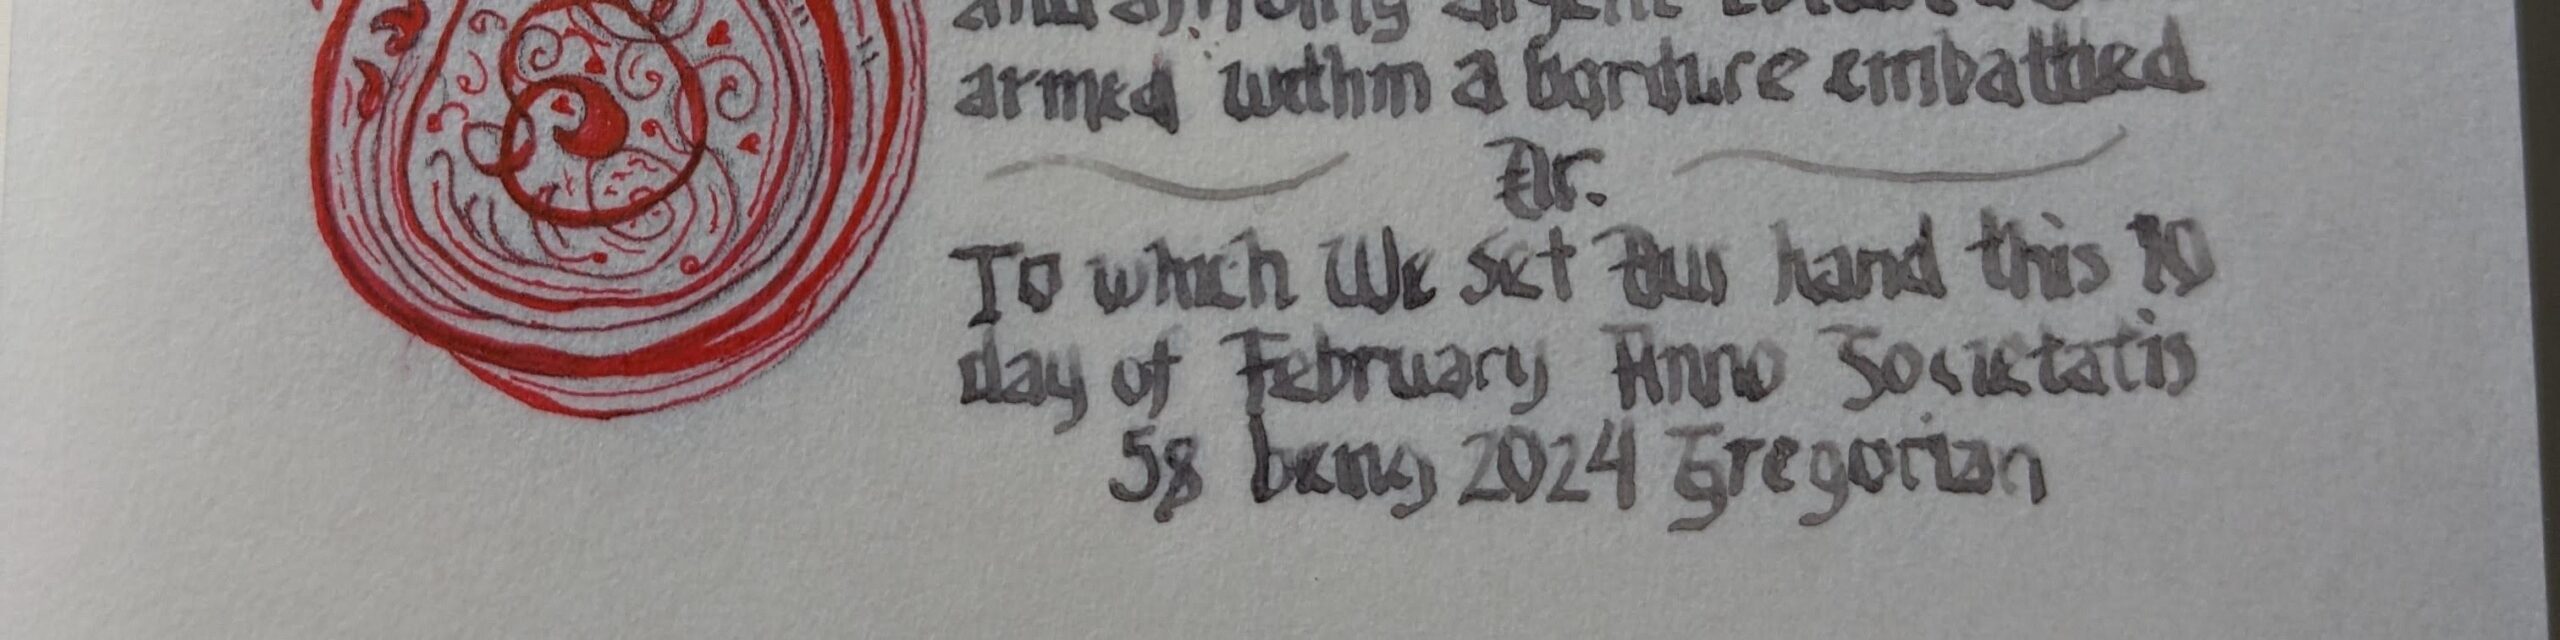 argent
armed within a bordure embattled
Or.
To which We set Our hand this 10
day of February Anno Societatis
58 being 2024 Gregorian